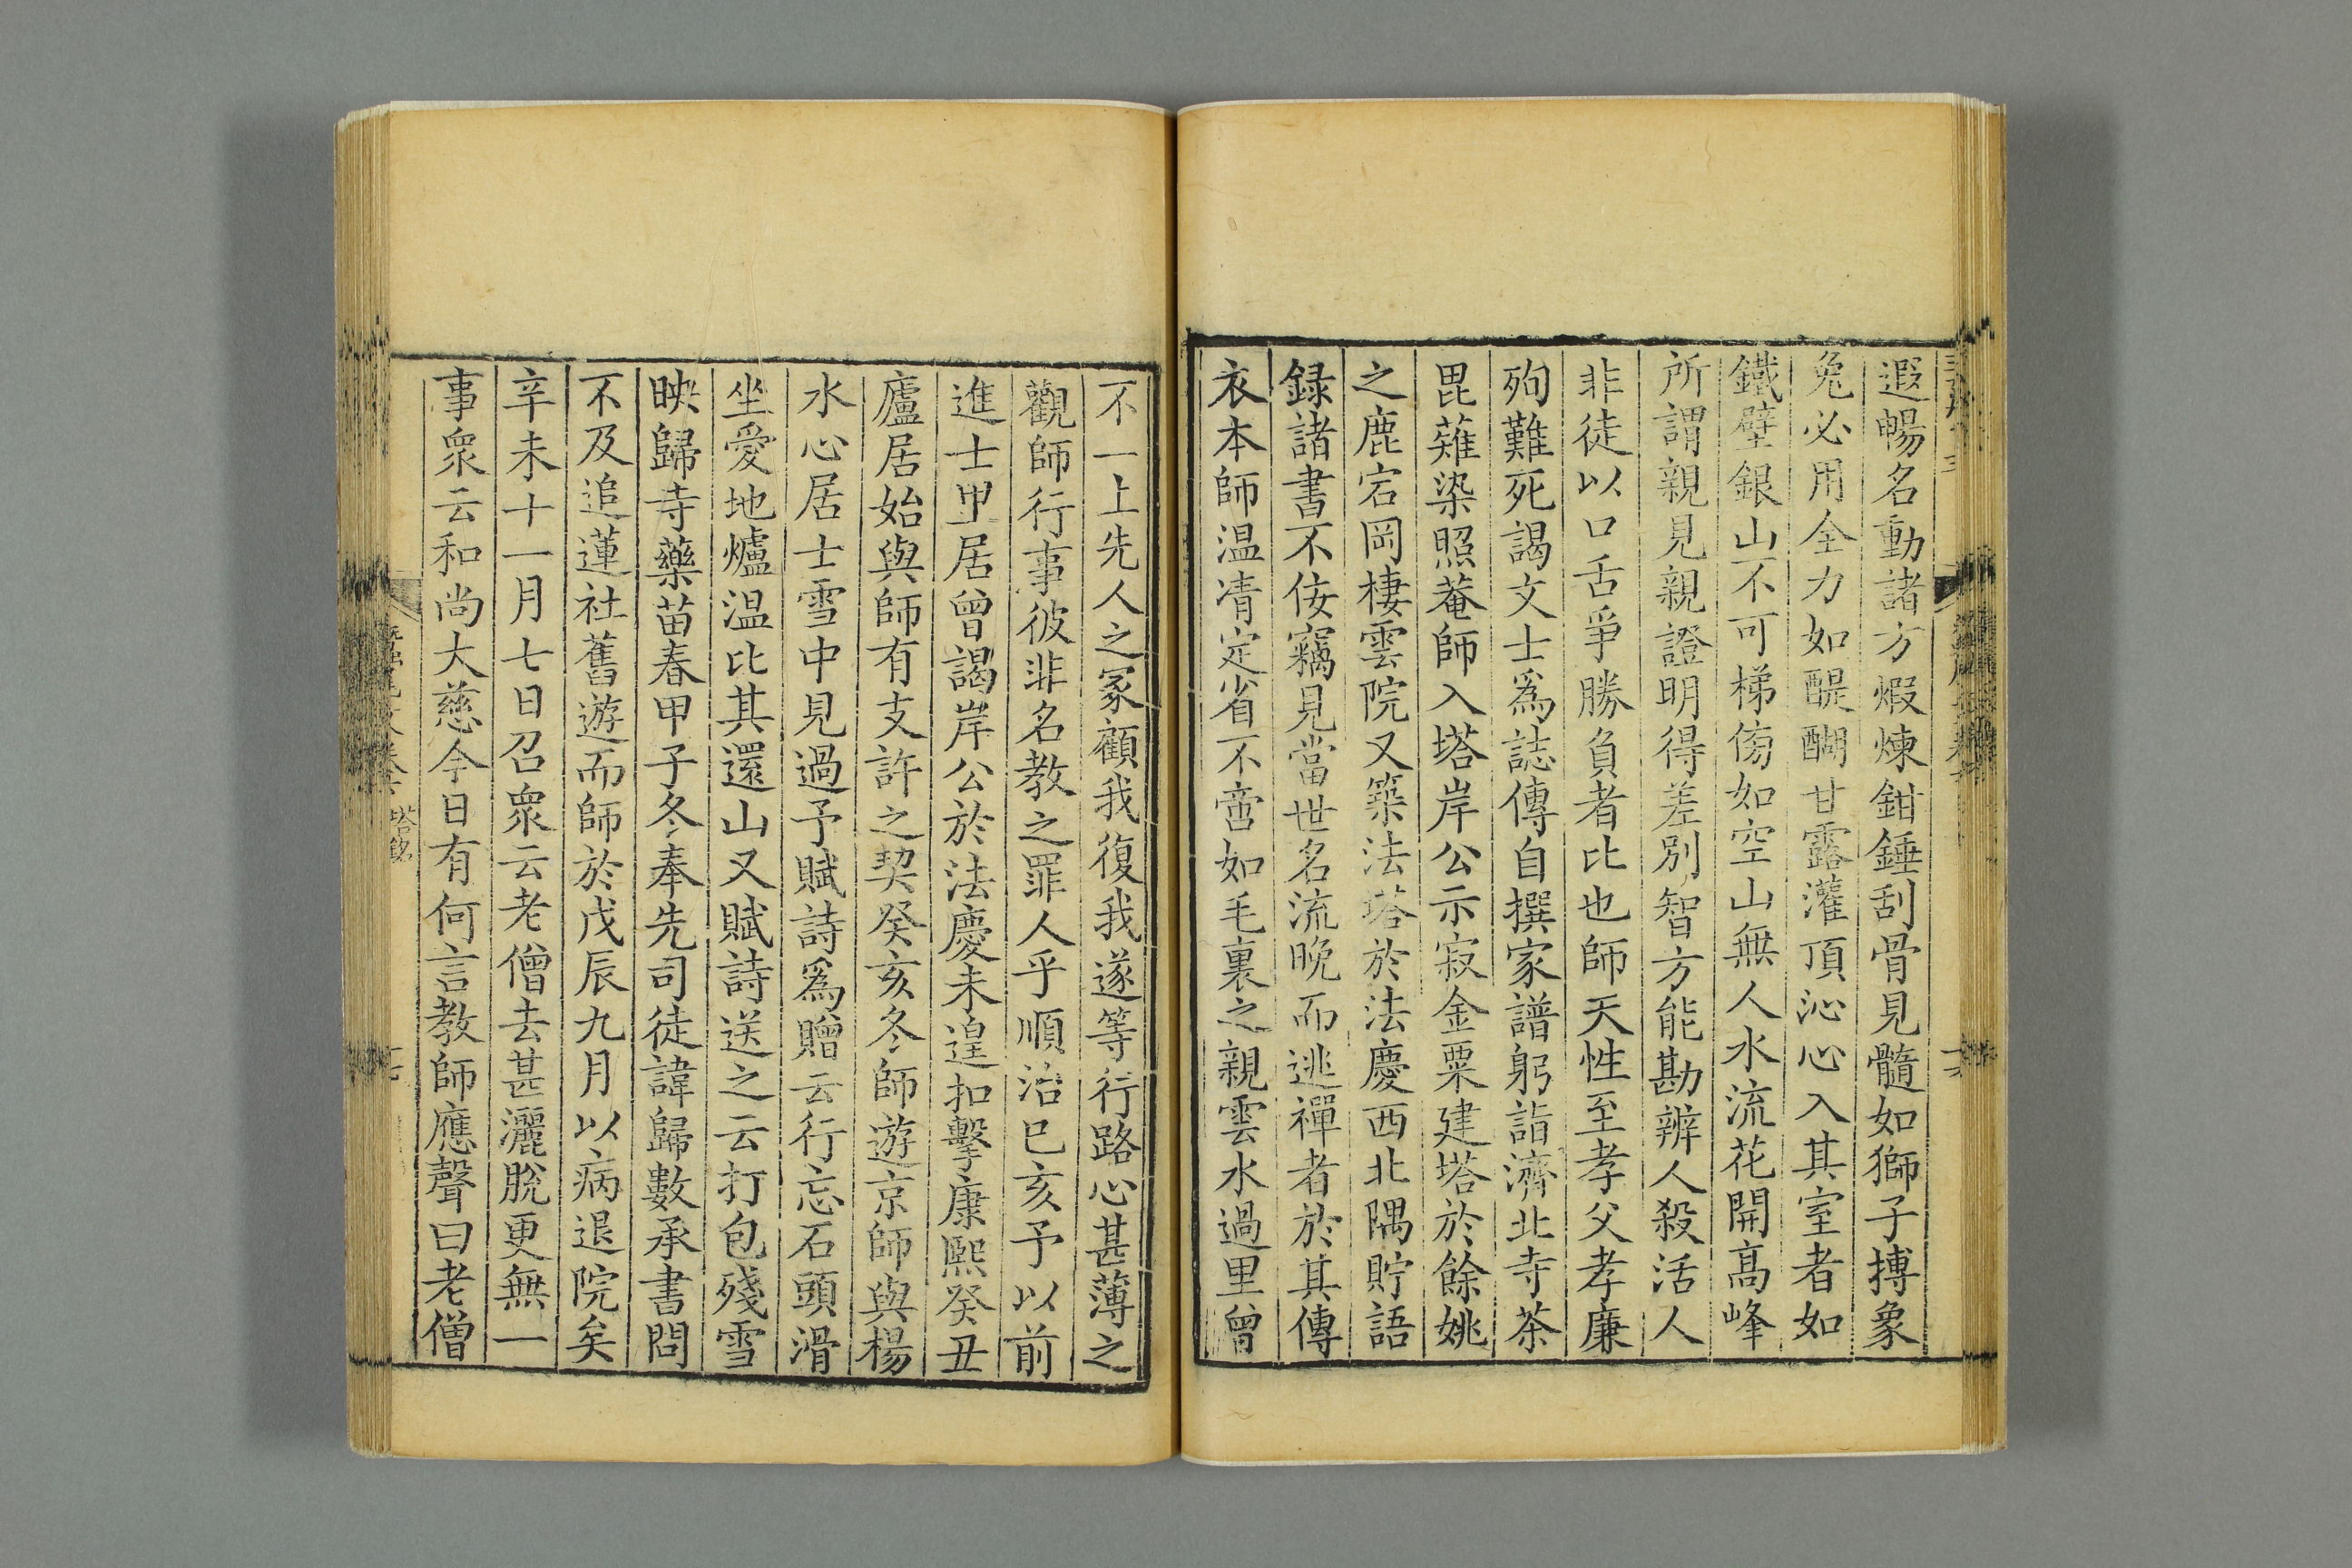 遐暢名動諸方煆煉鉗錘刮骨見髓如獅子搏象
兔必用全力如醍醐甘露灌頂沁心入其室者如
鐵壁銀山不可梯傍如空山無人水流花開高峰
所謂親見親證明得差別智方能勘辨人殺活人
非徒以口舌爭勝負者比也師天性至孝父孝廉
殉難死謁文士爲誌傳自撰家譜躬詣濟北寺茶
毘薙染照菴師入塔岸公示寂金粟建塔於餘姚
之鹿宕岡棲雲院又築法塔於法慶西北隅貯語
録諸書不佞竊見當世名流晚而逃禪者於其傳
衣本師温凊定省不啻如毛裏之親雲水過里曾
不一上先人之冢顧我復我遂等行路心甚薄之
觀師行事彼非名教之罪人乎順治巳亥予以前
進士里居曾謁岸公於法慶未遑扣擊康熙癸丑
廬居始與師有支許之契癸亥冬師遊京師與楊
水心居士雪中見過予賦詩爲贈云行忘石頭滑
坐愛地爐温比其還山又賦詩送之云打包殘雪
映歸寺藥苗春甲子冬奉先司徒諱歸數承書問
不及追蓮社舊遊而師於戊辰九月以病退院矣
辛未十一月七日召衆云老僧去甚灑脫更無一
事衆云和尚大慈今日有何言教師應聲曰老僧
塔銘